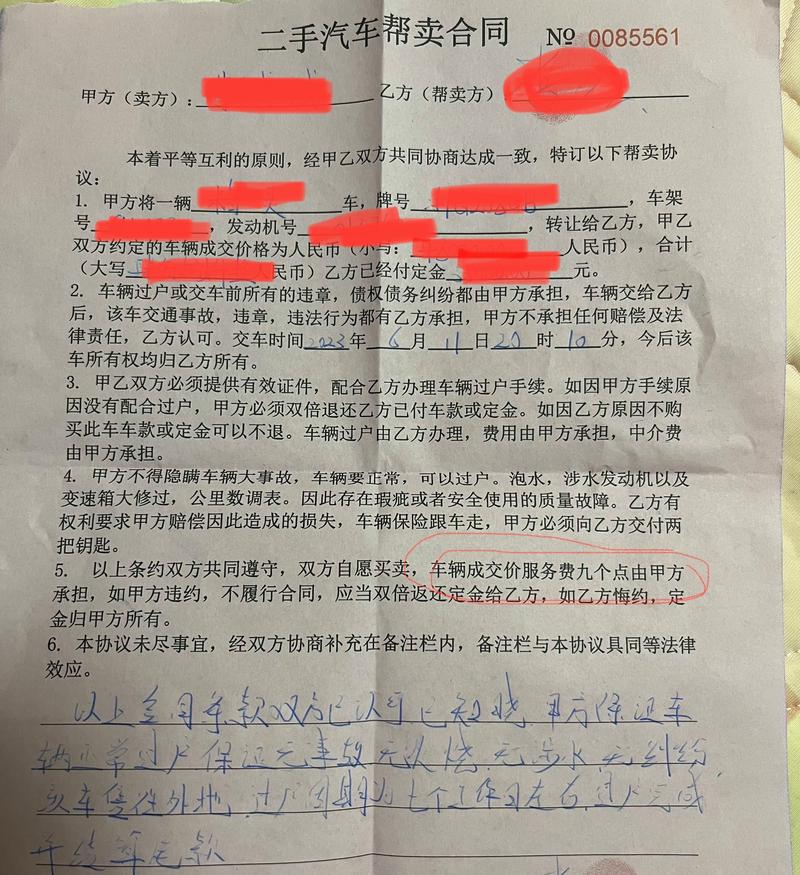 二手汽车帮卖合同 № 0085561
甲方（卖方）： 乙方（帮卖方）
本着平等互利的原则，经甲乙双方共同协商达成一致，特订以下帮卖协
议：
1. 甲方将一辆 车，牌号 ，车架
号 ，发动机号 ，转让给乙方，甲乙
双方约定的车辆成交价格为人民币（小写： 人民币），合计
（大写 人民币）乙方已经付定金 元。
2. 车辆过户或交车前所有的违章，债权债务纠纷都由甲方承担，车辆交给乙方
后，该车交通事故，违章，违法行为都有乙方承担，甲方不承担任何赔偿及法
律责任，乙方认可。交车时间2023年6月11日20时10分，今后该
车所有权均归乙方所有。
3. 甲乙双方必须提供有效证件，配合乙方办理车辆过户手续。如因甲方手续原
因没有配合过户，甲方必须双倍退还乙方已付车款或定金。如因乙方原因不购
买此车车款或定金可以不退。车辆过户由乙方办理，费用由甲方承担，中介费
由甲方承担。
4. 甲方不得隐瞒车辆大事故，车辆要正常，可以过户。泡水，涉水发动机以及
变速箱大修过，公里数调表。因此存在瑕疵或者安全使用的质量故障。乙方有
权利要求甲方赔偿因此造成的损失，车辆保险跟车走，甲方必须向乙方交付两
把钥匙。
5. 以上条约双方共同遵守，双方自愿买卖，车辆成交价服务费九个点由甲方
承担，如甲方违约，不履行合同，应当双倍返还定金给乙方，如乙方悔约，定
金归甲方所有。
6. 本协议未尽事宜，经双方协商补充在备注栏内，备注栏与本协议具同等法律
效应。
以上合同条款双方已认可已知晓 甲方保证车
辆正常过户保证无事故 无火烧 无涉水 无纠纷
该车售往外地，过户周期为七个工作日左右，过户完成
后结算尾款